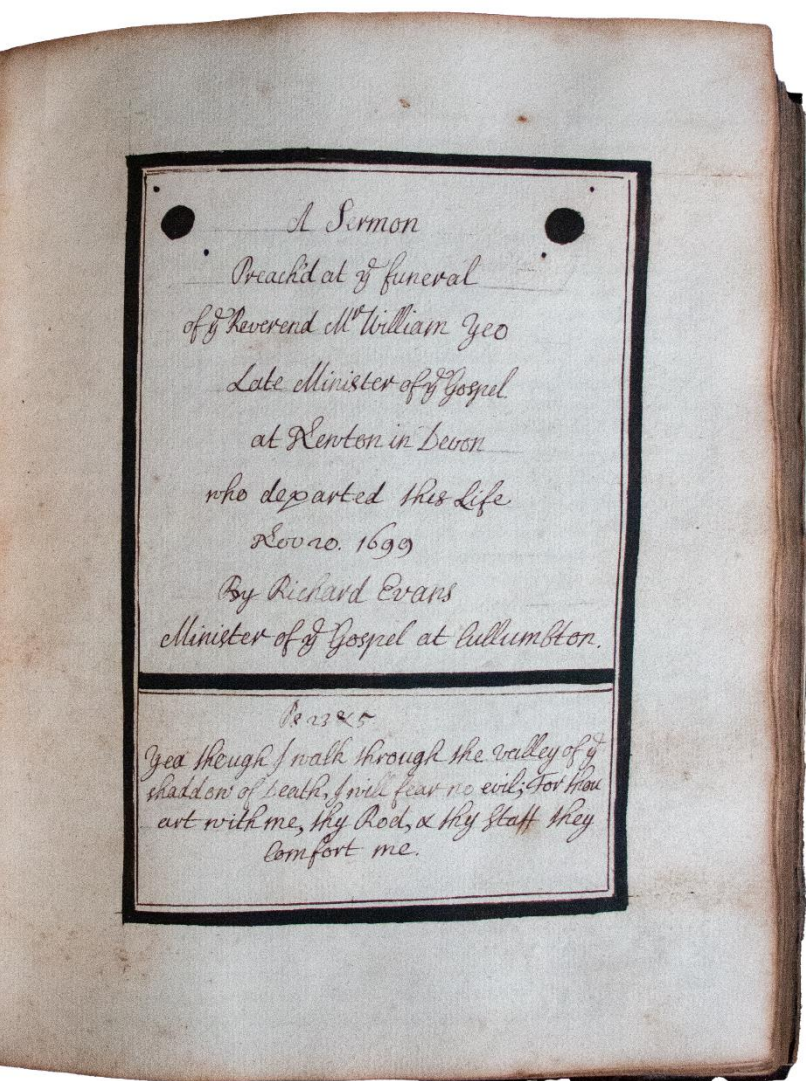 A Sermon
Preach'd at yᵉ funeral
of yᵉ Reverend Mʳ William Yeo
Late Minister of yᵉ Gospel
at Newton in Devon
who departed this Life
Nov 20. 1699
By Richard Evans
Minister of yᵉ Gospel at Cullumbton.
Ps 23
Yea though I walk through the valley of yᵉ
shaddow of Death, I will fear no evil; For thou
art with me, thy Rod, & thy Staff they
Comfort me.